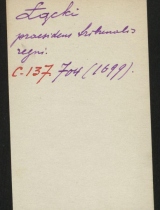 Łącki
praesidens tribunalis
regni.
C. 137. 704 (1699).